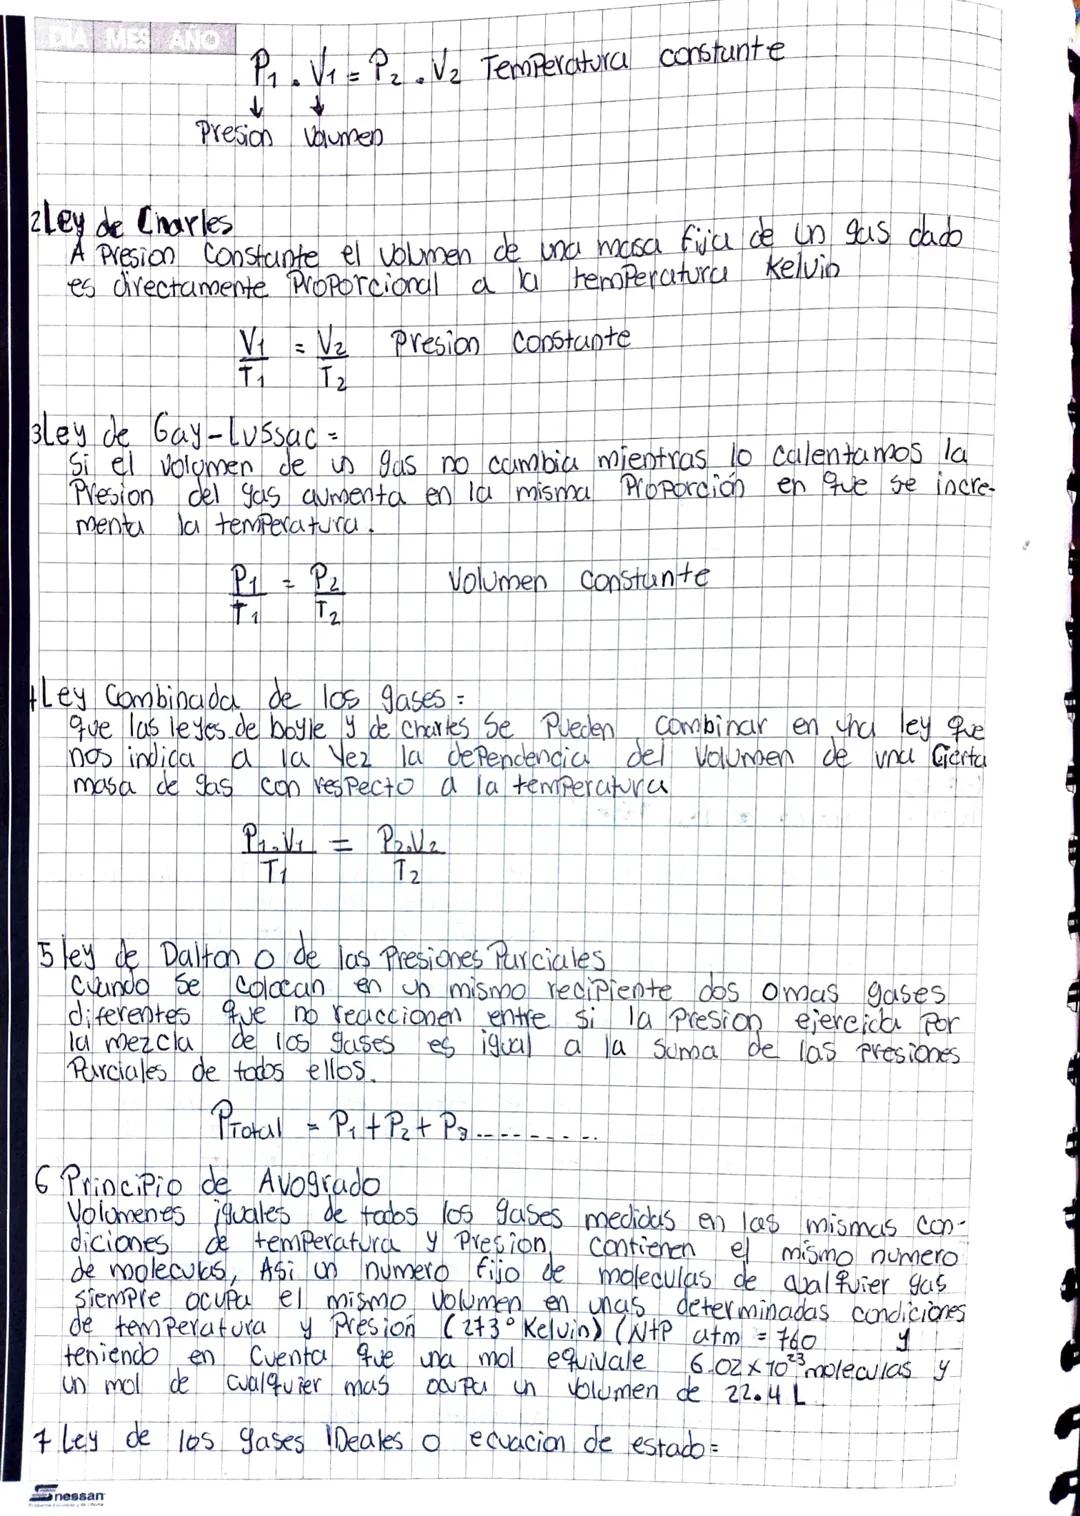 DIA MES AÑO
P1 . V1 = P2 . V2 Temperatura constante
↓ ↓
Presion Volumen
2 Ley de Charles
A Presion Constante el volumen de una masa fija de un gas dado
es directamente Proporcional a la temperatura Kelvin
V1/T1 = V2/T2 Presion constante
3 Ley de Gay-Lussac =
Si el volumen de un gas no cambia mientras lo calentamos la
Presion del gas aumenta en la misma Proporción en que se incre-
menta la temperatura.
P1/T1 = P2/T2 Volumen constante
4 Ley Combinada de los gases =
que las leyes de boyle y de charles Se Pueden combinar en una ley que
nos indica a la vez la dependencia del volumen de una Cierta
masa de gas con respecto a la temperatura
P1.V1/T1 = P2.V2/T2
5 ley de Dalton o de las Presiones Parciales
Cuando Se Colocan en un mismo recipiente dos o mas gases
diferentes que no reaccionen entre si la Presion ejercida Por
la mezcla de los gases es igual a la suma de las presiones
Parciales de todos ellos.
PTotal = P1 + P2 + P3 ---------
6 Principio de Avogrado
Volumenes iguales de todos los gases medidas en las mismas con-
diciones de temperatura y Presion, contienen el mismo numero
de moleculas, Asi un numero fijo de moleculas de cualquier gas
siempre ocupa el mismo volumen en unas determinadas condiciones
de temperatura y Presión (273° Kelvin) (NtP atm = 760 y
teniendo en Cuenta que una mol equivale 6.02 x 10²³ moleculas y
un mol de cualquier mas ocupa un volumen de 22.4 L
7 Ley de los gases IDeales o ecuacion de estado=
nessan